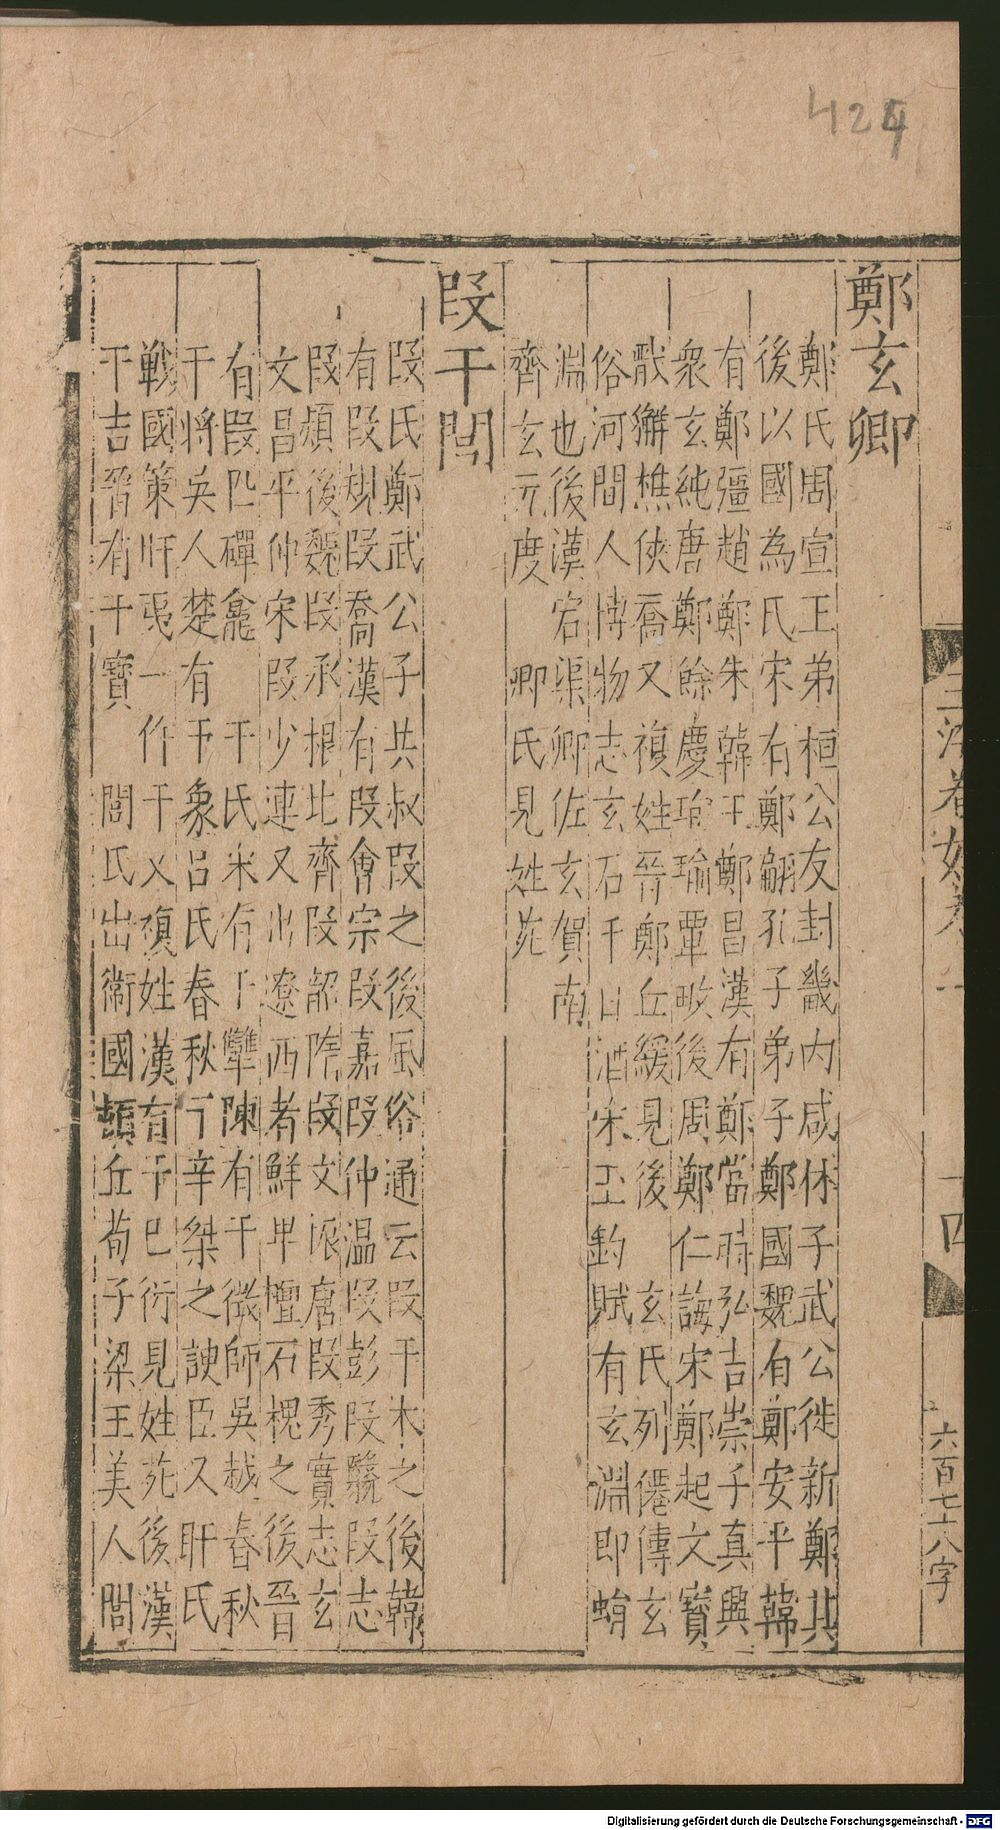 424
六百七十八字
鄭玄卿
鄭氏周宣王弟桓公友封畿內咸林子武公徙新鄭其
後以國為氏宋有鄭翩孔子弟子鄭國魏有鄭安平韓
有鄭彊趙鄭朱韓王鄭昌漢有鄭當時弘吉崇子真興
衆玄純唐鄭餘慶珣瑜覃畋後周鄭仁誨宋鄭起文寶
獻獬樵俠喬又複姓晉鄭丘緩見後 玄氏列僊傳玄
俗河間人博物志玄石千日酒宋玉釣賦有玄淵即蜎
淵也後漢宕渠卿佐玄賀南
齊玄元度 卿氏見姓苑
段干閭
段氏鄭武公子共叔段之後風俗通云段干木之後韓
有段規段喬漢有段會宗段嘉段仲温段彭段翳段志
段熲後魏段承根北齊段韶隋段文振唐段秀實志玄
文昌平仲宋段少連又出遼西者鮮卑檀石槐之後晉
有段匹磾龕 干氏宋有干犫陳有干徵師吳越春秋
干將吳人楚有干象呂氏春秋干辛桀之諛臣又邗氏
戰國策邗夷一作干又複姓漢有干巳衍見姓苑後漢
干吉晉有干寶 閭氏出衛國頓丘荀子梁王美人閭